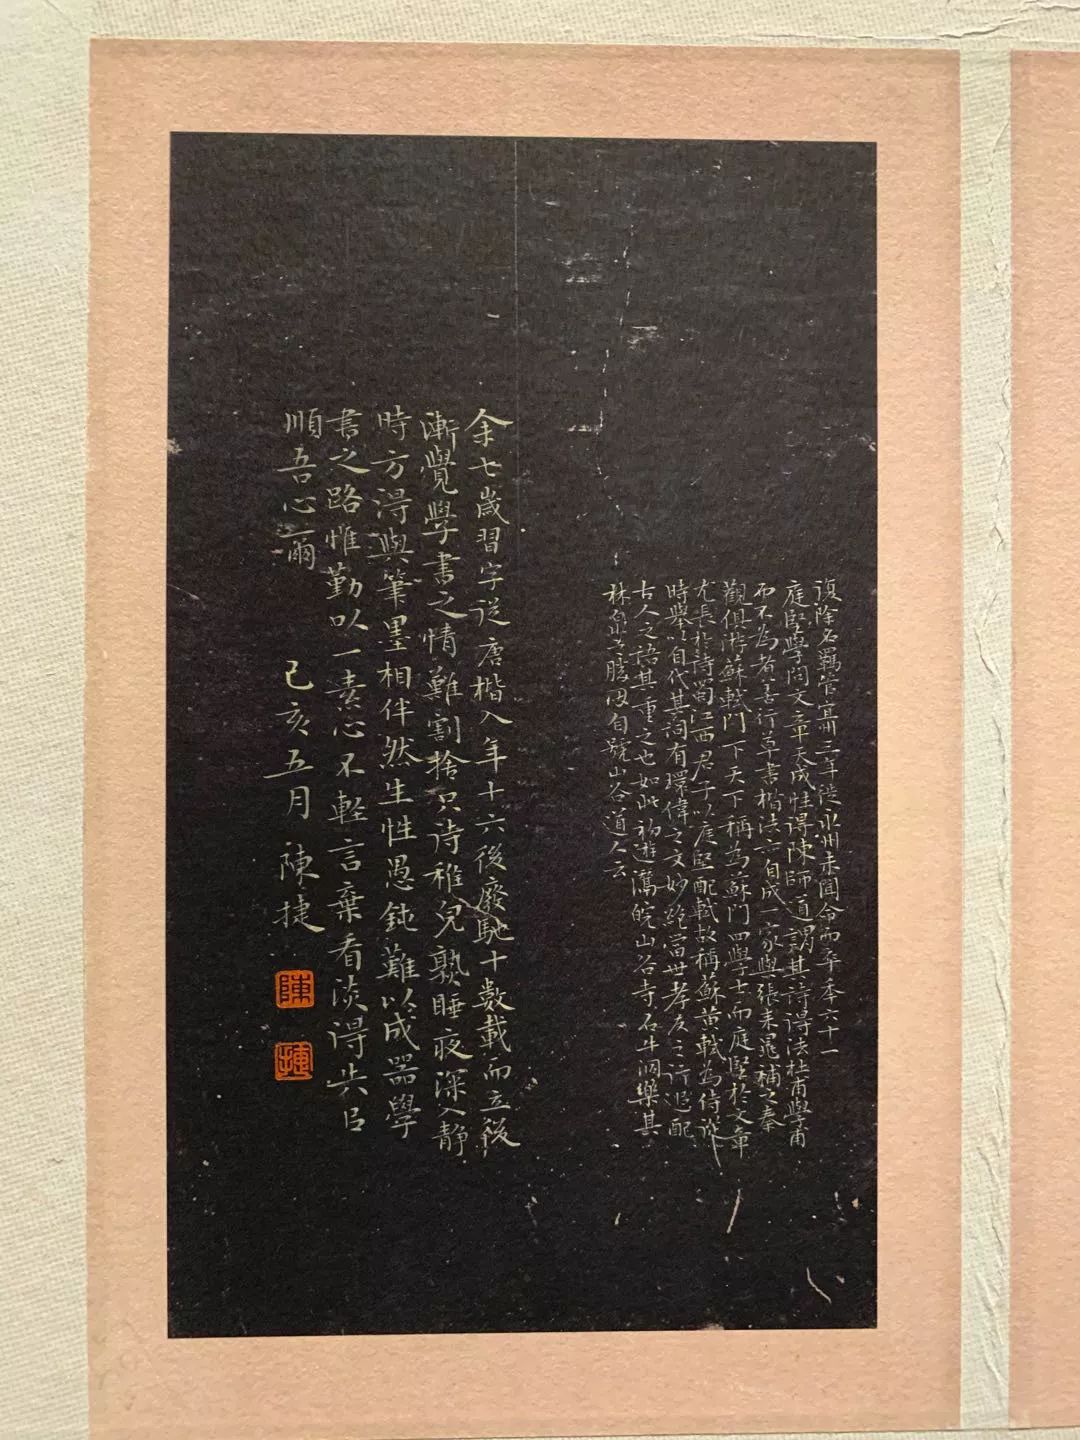 復除名羈管宜州三年徙永州未聞命而卒年六十一
庭堅學問文章天成性得陳師道謂其詩得法杜甫學甫
而不為者善行草書楷法亦自成一家與張耒晁補之秦
觀俱游蘇軾門下天下稱為蘇門四學士而庭堅於文章
尤長於詩蜀江西君子以庭堅配軾故稱蘇黃軾為侍從
時舉以自代其詞有瓌偉之文妙絕當世孝友之行追配
古人之語其重之也如此初遊灊皖山谷寺石牛洞樂其
林泉之勝因自號山谷道人云
余七歲習字從唐楷入年十六後廢馳十數載而立後
漸覺學書之情難割捨只待稚兒熟睡夜深入静
時方得與筆墨相伴然生性愚鈍難以成器學
書之路惟勤以一素心不輕言棄看淡得失但
順吾心爾 己亥五月 陳捷
陳
捷